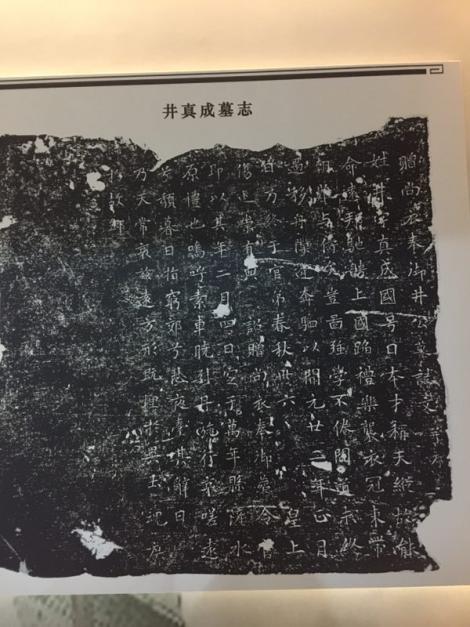 井真成墓志
贈尚衣奉御井公墓誌文并序
姓井字真成國号日本才稱天縱故能
命遠邦馳騁上國蹈禮樂襲衣冠束帶
朝難与儔矣豈圖強學不倦聞道未終
遇移舟隙逢奔駟以開元廿二年正月
日終于官弟春秋卅六皇上
傷追崇有典詔贈尚衣奉御葬令
卽以其年二月四日窆于萬年縣滻水
原禮也嗚呼素車曉引丹旐行哀嗟遠
兮頹暮日指窮郊兮悲夜臺其辭曰
乃天常哀茲遠方形旣埋于異土魂庶
于故鄉